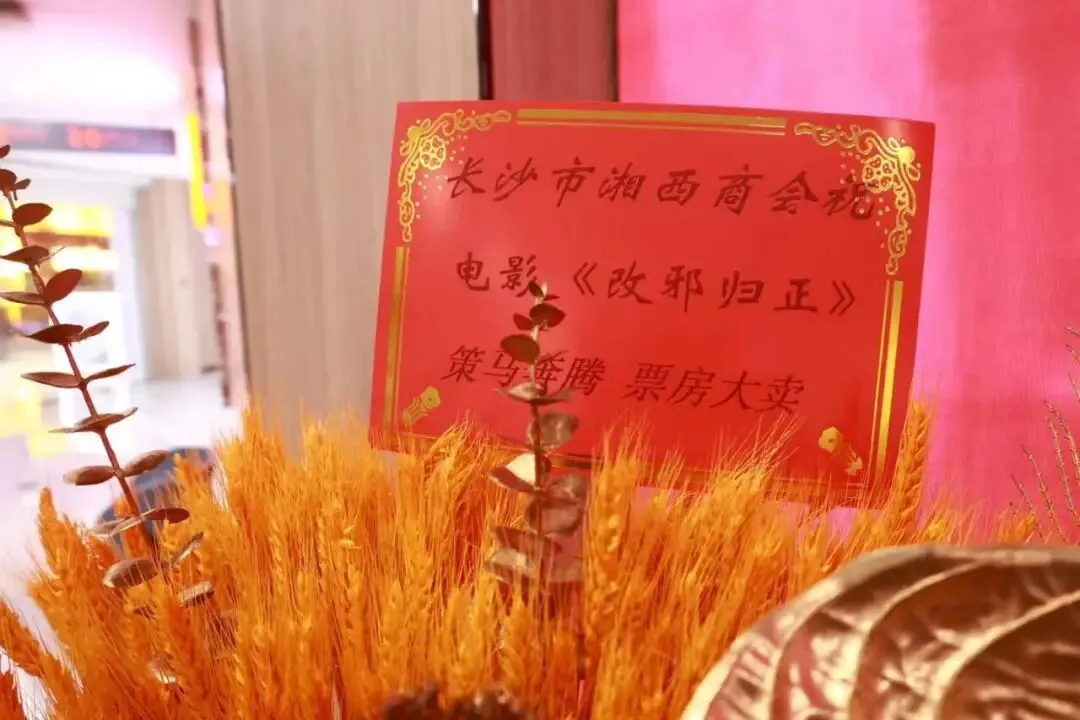 长沙市湘西商会祝
电影《改邪归正》
策马奔腾 票房大卖